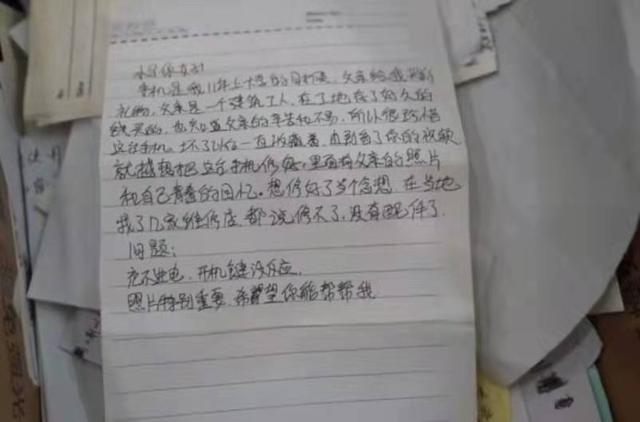 手机是我11年上大学的时候，父亲给我买的
礼物，父亲是一个建筑工人，在工地存了好久的
钱买的，也知道父亲的辛苦和不易，所以很珍惜
这台手机，坏了以后一直放着，直到看了你的视频
就越想把这台手机修好，里面有父亲的照片
和自己青春的回忆。想修好了当个念想，在当地
找了几家维修店，都说修不了，没有配件了．
问题：
充不进电．开机键没反应．
照片特别重要，希望你能帮帮我